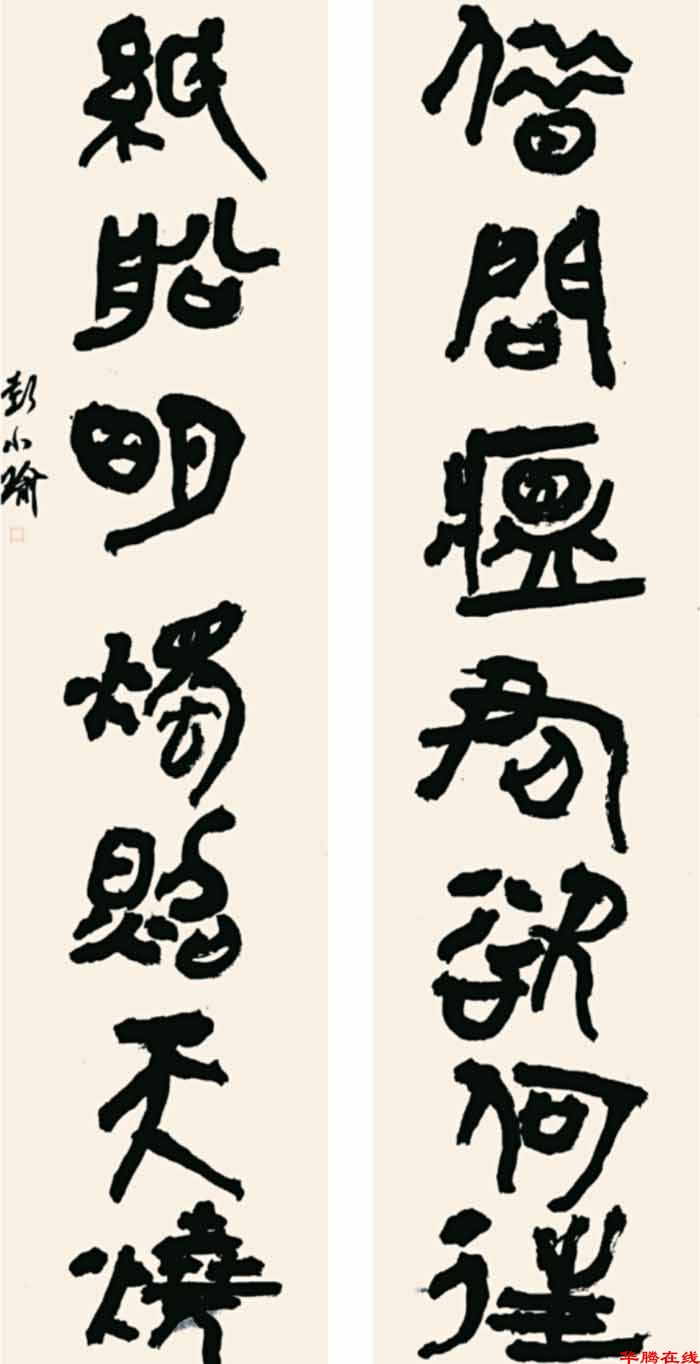 借問瘟君欲何往
紙船明燭照天燒
彭小瑜
华腾在线